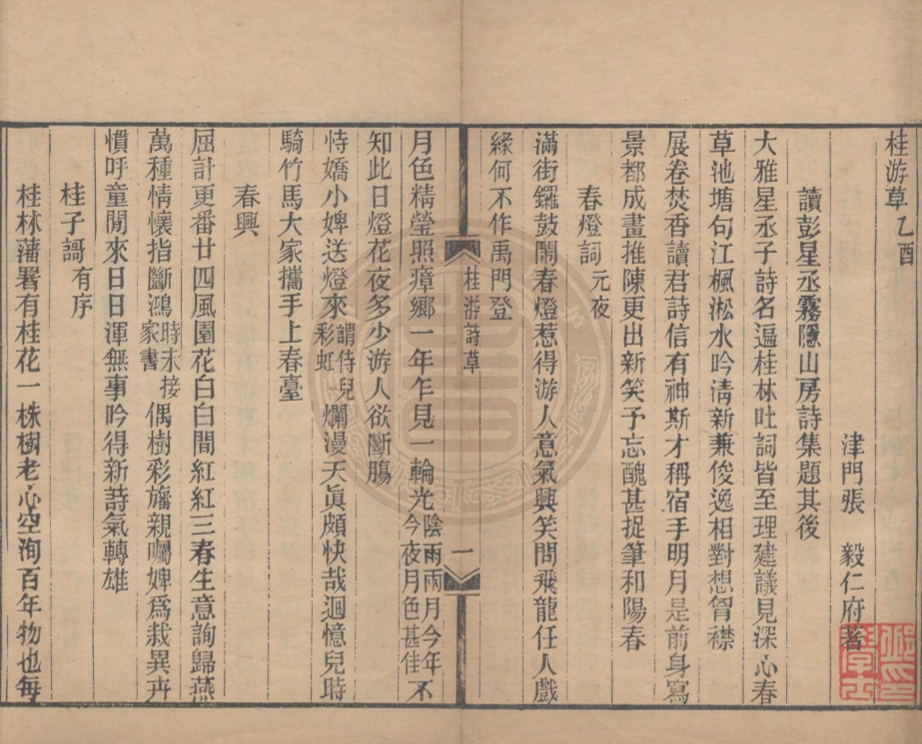 桂游草乙酉
津門張　毅仁府著
讀彭星丞霧隱山房詩集題其後
大雅星丞子詩名遍桂林吐詞皆至理建議見深心春
草池塘句江楓淞水吟淸新兼俊逸相對想胷襟
展卷焚香讀君詩信有神斯才稱宿手明月是前身寫
景都成畫推陳更出新笑予忘醜甚捉筆和陽春
春燈詞元夜
滿街鑼鼓鬧春燈惹得游人意氣興笑問飛龍任人戲
緣何不作禹門登
桂游詩草
一
月色精瑩照瘴鄉一年乍見一輪光陰雨兩月今年不今夜月色甚佳
知此日燈花夜多少游人欲斷膓
恃嬌小婢送燈來謂侍兒彩虹爛漫天眞頗快哉迴憶兒時
騎竹馬大家攜手上春臺
春興
屈計更番廿四風園花白白間紅紅三春生意詢歸燕
萬種情懷指斷鴻時未接家書偶樹彩旛親囑婢爲栽異卉
慣呼童閒來日日渾無事吟得新詩氣轉雄
桂子謌有序
桂林藩署有桂花一株樹老心空洵百年物也每